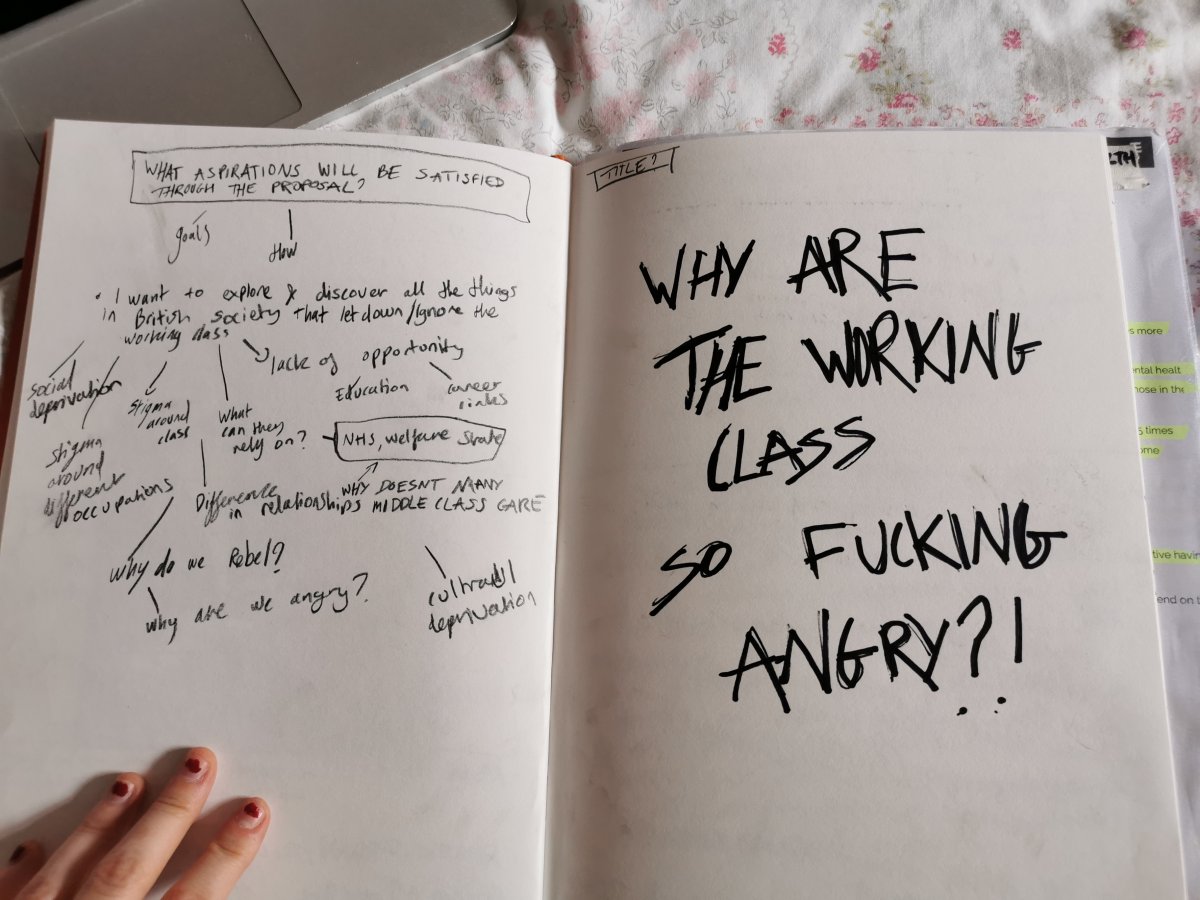 WHAT ASPIRATIONS WILL BE SATISFIED
THROUGH THE PROPOSAL?
goals
How
• I want to explore & discover all the things
in British society that let down/ignore the
working class
lack of opportunity
Education
career
links
social
deprivation
Stigma
around
class
What
can they
rely on?
NHS, welfare State
stigma
around
different
occupations
Difference
in relationships
WHY DOESNT MANY
MIDDLE CLASS CARE
Why do we Rebel?
why are we angry?
deprivation
TITLE?
WHY ARE
THE WORKING
CLASS
SO FUCKING
ANGRY?!
LTH
s more
ental healt
hose in the
5 times
ome
tive havin
end on t